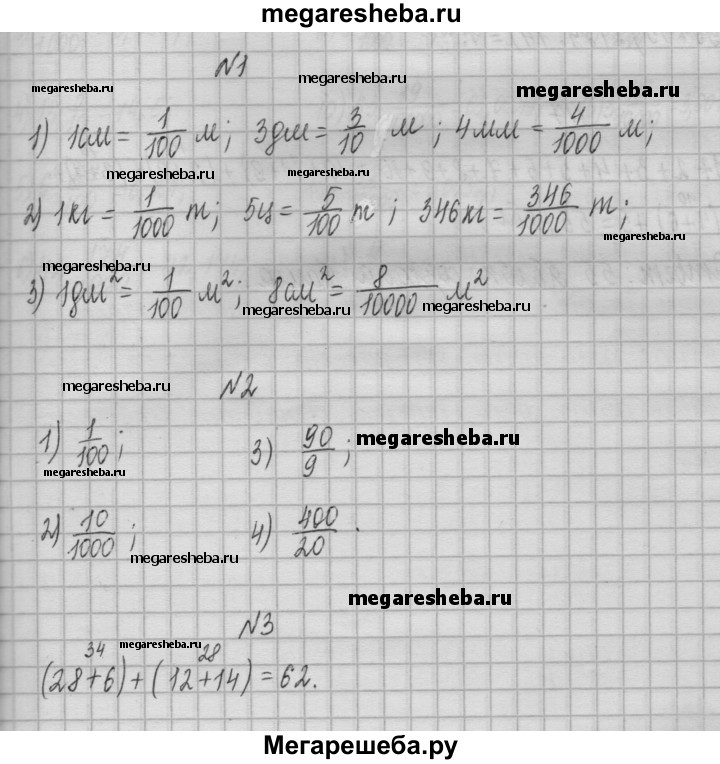 megaresheba.ru
№1 megaresheba.ru
megaresheba.ru megaresheba.ru
1) 1см = 1/100 м; 3дм = 3/10 м; 4мм = 4/1000 м;
megaresheba.ru megaresheba.ru
2) 1кг = 1/1000 т; 5ц = 5/100 т; 346кг = 346/1000 т;
megaresheba.ru
3) 1дм² = 1/100 м²; 8см² = 8/10000 м²
megaresheba.ru megaresheba.ru
megaresheba.ru №2
1) 1/100; 3) 90/9; megaresheba.ru
megaresheba.ru
2) 10/1000; 4) 400/20.
megaresheba.ru
megaresheba.ru
№3
34 megaresheba.ru 28
(28+6)+(12+14)=62.
Мегарешеба.ру